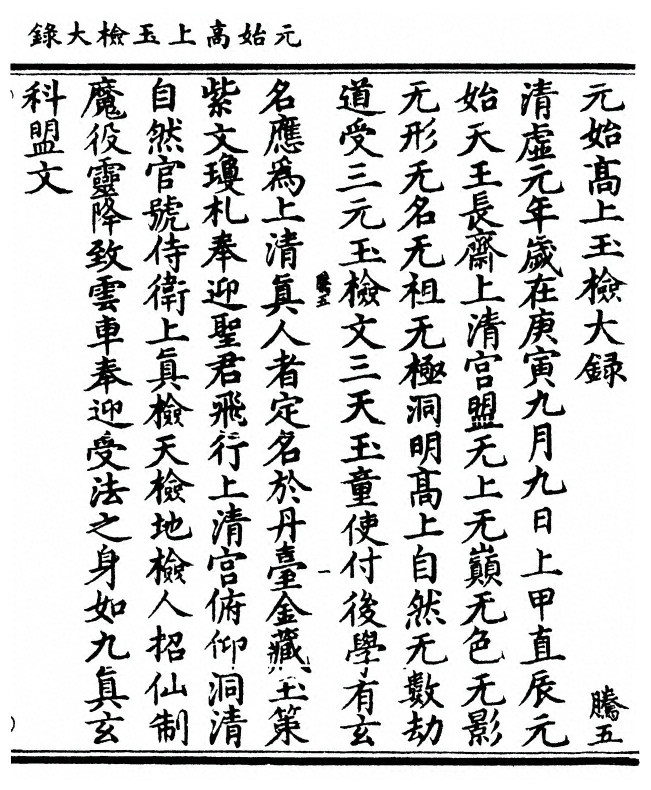 元始高上玉檢大錄
元始髙上玉檢大録
騰五
清虛元年歲在庚寅九月九日上甲直辰元
始天王長齋上清宫盟无上无巔无色无影
无形无名无祖无極洞明髙上自然无數劫
道受三元玉檢文三天玉童使付後學有玄
騰五
一
名應爲上清眞人者定名於丹臺金藏玉策
紫文瓊札奉迎聖君飛行上清宫俯仰洞清
自然官號侍衛上眞檢天檢地檢人招仙制
魔役靈降致雲車奉迎受法之身如九眞玄
科盟文